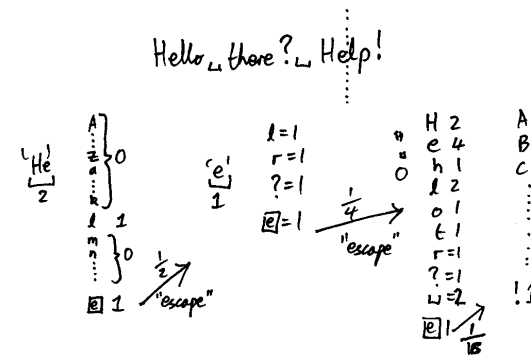 Hello␣there?␣Help!
'He'
2
A
⋮
z
a
⋮
k
0
l 1
m
n
⋮
0
e 1
1/2
"escape"
'e'
1
l=1
r=1
?=1
e=1
1/4
"escape"
"
"
0
H 2
e 4
h 1
l 2
o 1
t 1
r=1
?=1
␣=2
e 1
A
B
C
⋮
! 1